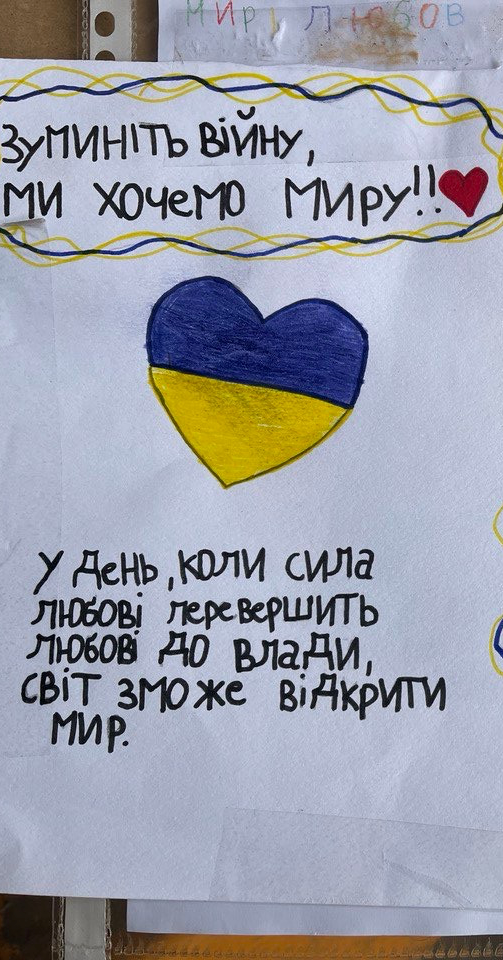 Мир і любов
Зупиніть війну,
ми хочемо миру!!
У день, коли сила
любові перевершить
любові до влади,
світ зможе відкрити
мир.